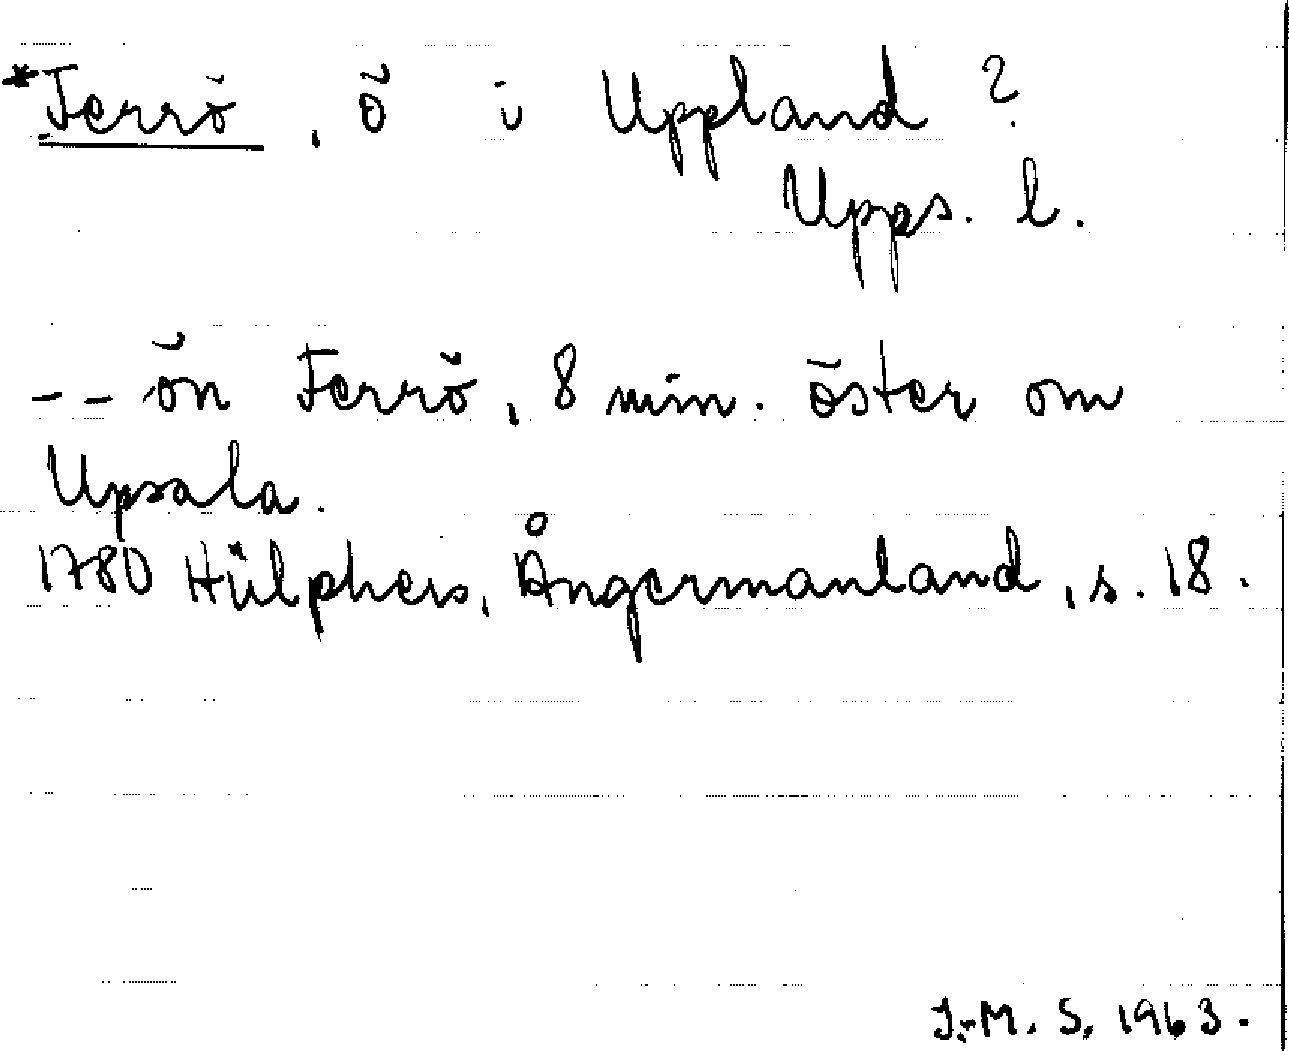 *Ferrö, ö i Uppland?
Upps. l.
-- ön Ferrö, 8 min. öster om
Upsala.
1780 Hülphers, Ångermanland, s. 18.
I.-M. S. 1963.